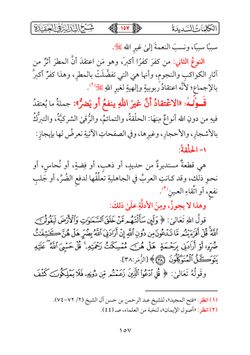 الكلمات السديدة ١٥٧ شرح البداية في العقيدة
سببٌ سببًا، ونسبَ النعمةَ إلى غيرِ اللهِ ﷻ.
النوعُ الثاني: من كفرَ كفرًا أكبرَ، وهو مَن اعتقدَ أنَّ المطرَ أثرٌ من
آثارِ الكواكبِ والنجومِ، وأنها هي التي تفضَّلَت بالمطرِ، وهذا كفرٌ أكبرُ
بالإجماعِ؛ لأنَّه اعتقادُ ربوبيةٍ وإلهيةٍ لغيرِ اللهِ ﷻ(١).
قَولُهُ: «الاعْتِقادُ أنَّ غيرَ اللهِ ينفعُ أو يضُرُّ»: جملةُ ما يعتقدُ
فيهِ من دونِ اللهِ أنواعٌ منها: الحلقَةُ، والتمائمُ، والرُّقَى الشركيَّةُ، والتبرُّكُ
بالأشجارِ، والأحجارِ، وغيرِها، وفي الصفحاتِ الآتيةِ نعرضُ لها بإيجازٍ:
١- الحَلْقَةُ:
هي قطعةٌ مستديرةٌ من حديدٍ، أو ذهبٍ، أو فضةٍ، أو نُحَاسٍ، أو
نحوِ ذلك، وقد كـانت العربُ في الجاهليةِ تعلِّقُها لدفعِ الضُّرِّ، أو جَلبِ
نفعٍ، أو اتِّقاءِ العينِ(٢).
وهذا لا يجوزُ، ومِنَ الأدلَّةِ على ذلكَ:
قولُ اللهِ تعالى: ﴿وَلَئِن سَأَلْتَهُم مَّنْ خَلَقَ السَّمَٰوَٰتِ وَالْأَرْضَ لَيَقُولُنَّ
اللَّهُ قُلْ أَفَرَءَيْتُم مَّا تَدْعُونَ مِن دُونِ اللَّهِ إِنْ أَرَادَنِيَ اللَّهُ بِضُرٍّ هَلْ هُنَّ كَٰشِفَٰتُ
ضُرِّهِۦٓ أَوْ أَرَادَنِي بِرَحْمَةٍ هَلْ هُنَّ مُمْسِكَٰتُ رَحْمَتِهِۦ قُلْ حَسْبِيَ اللَّهُ عَلَيْهِ
يَتَوَكَّلُ الْمُتَوَكِّلُونَ﴾ [الزُّمَر:٣٨].
وقولُهُ تعالى: ﴿قُلِ ادْعُوا الَّذِينَ زَعَمْتُم مِّن دُونِهِۦ فَلَا يَمْلِكُونَ كَشْفَ
(١) انظر: «فتح المجيد»، للشيخ عبد الرحمن بن حسن آل الشيخ (٢/ ٧٢-٧٤).
(٢) انظر: «أصول الإيمان»، لنخبة من العلماء، ص(٤٤).
١٥٧